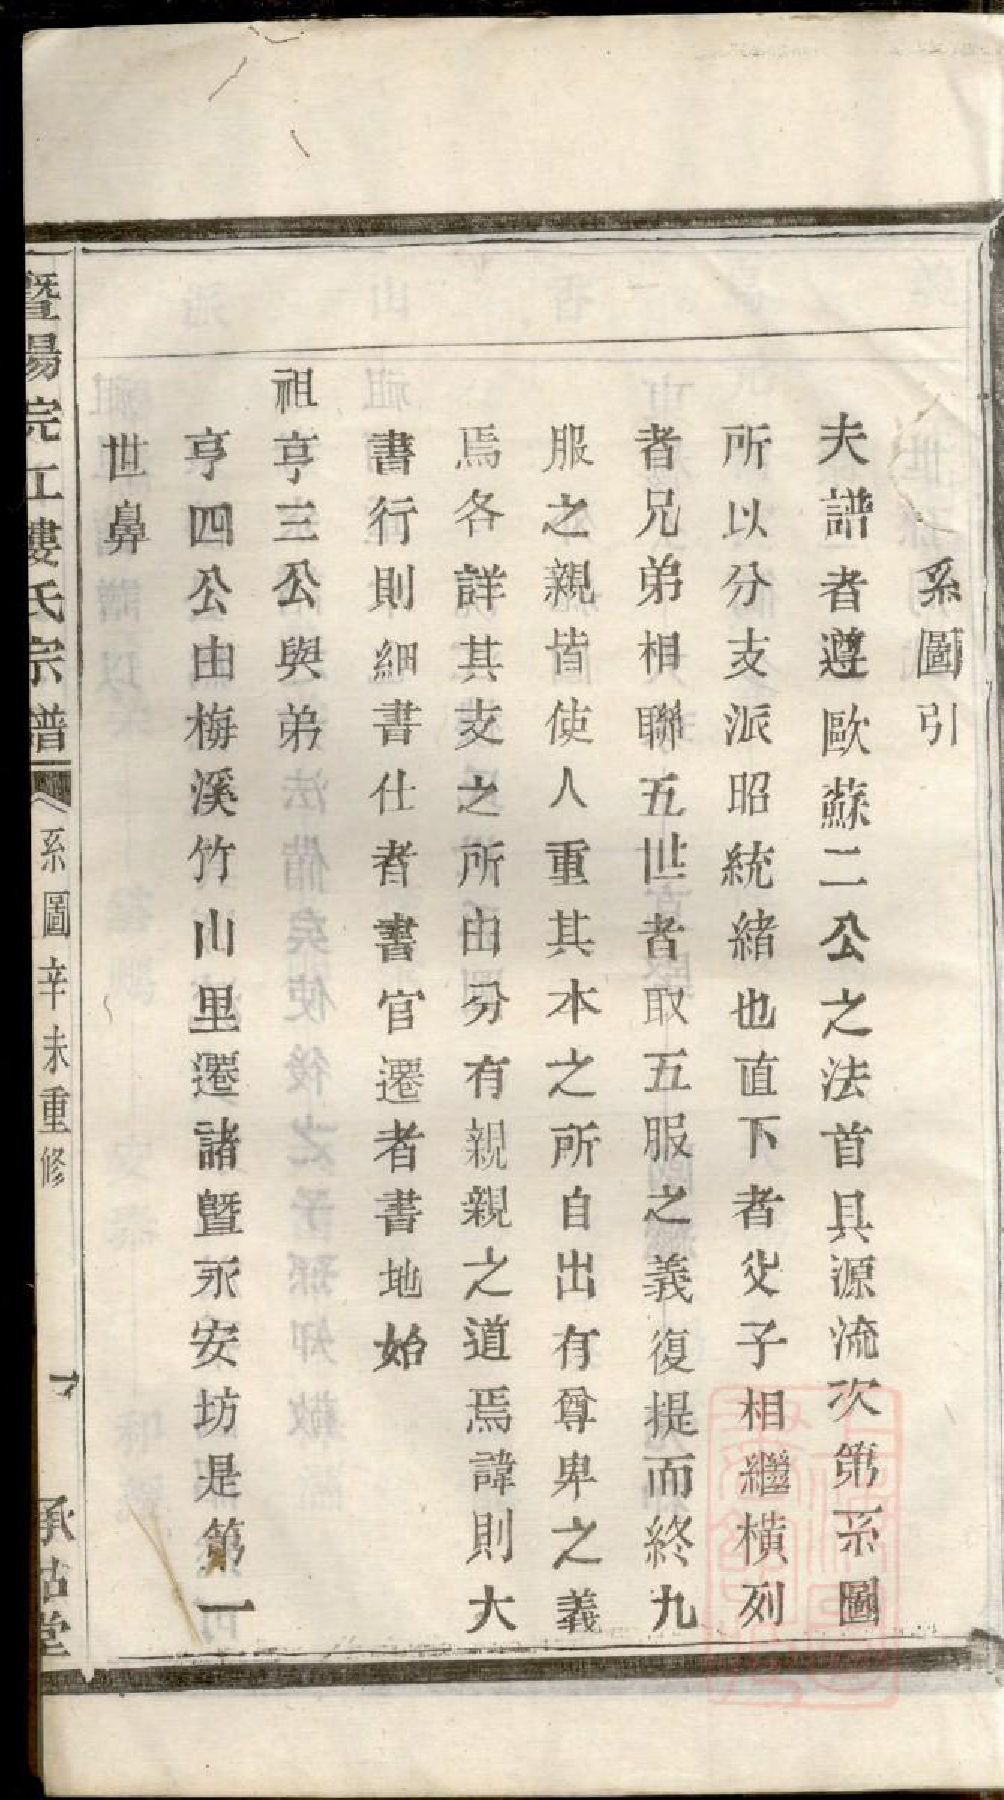 系圖引
夫譜者遵歐蘇二公之法首具源流次第系圖
所以分支派昭統緒也直下者父子相繼橫列
者兄弟相聯五世者取五服之義復提而終九
服之親皆使人重其本之所自出有尊卑之義
焉各詳其支之所由分有親親之道焉諱則大
書行則細書仕者書官遷者書地始
祖亨三公與弟
亨四公由梅溪竹山里遷諸暨永安坊是第一
世鼻
暨陽完江婁氏宗譜
系圖辛未重修
承祜堂